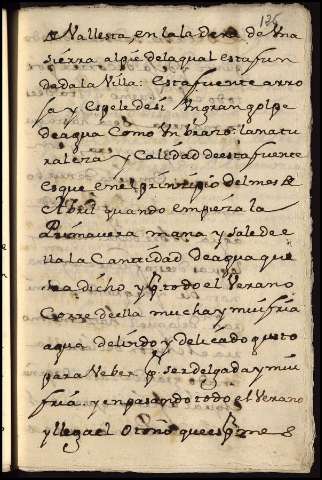 135
de Vallesta, en la ladera de Vna
sierra al pie de la qual esta fun
dada la Villa: Esta fuente arro
ja y espele de si Vn gran golpe
de agua Como Vn brazo: la natu
raleza y Calidad de esta fuente
es que en el prinzipio del mes de
Abril quando empieza la
Primavera mana y sale de e
lla la Cantidad de agua que
sea dicho y p. todo el Verano
Corre de ella mucha y mui fria
agua de lindo y delicado gusto
para Veber p. ser delgada y mui
fria: y en pasando todo el Verano
y llega el Otoño que es p. me